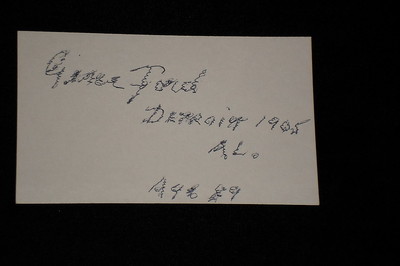 Gene Ford
Detroit 1905
AL.
Age 89